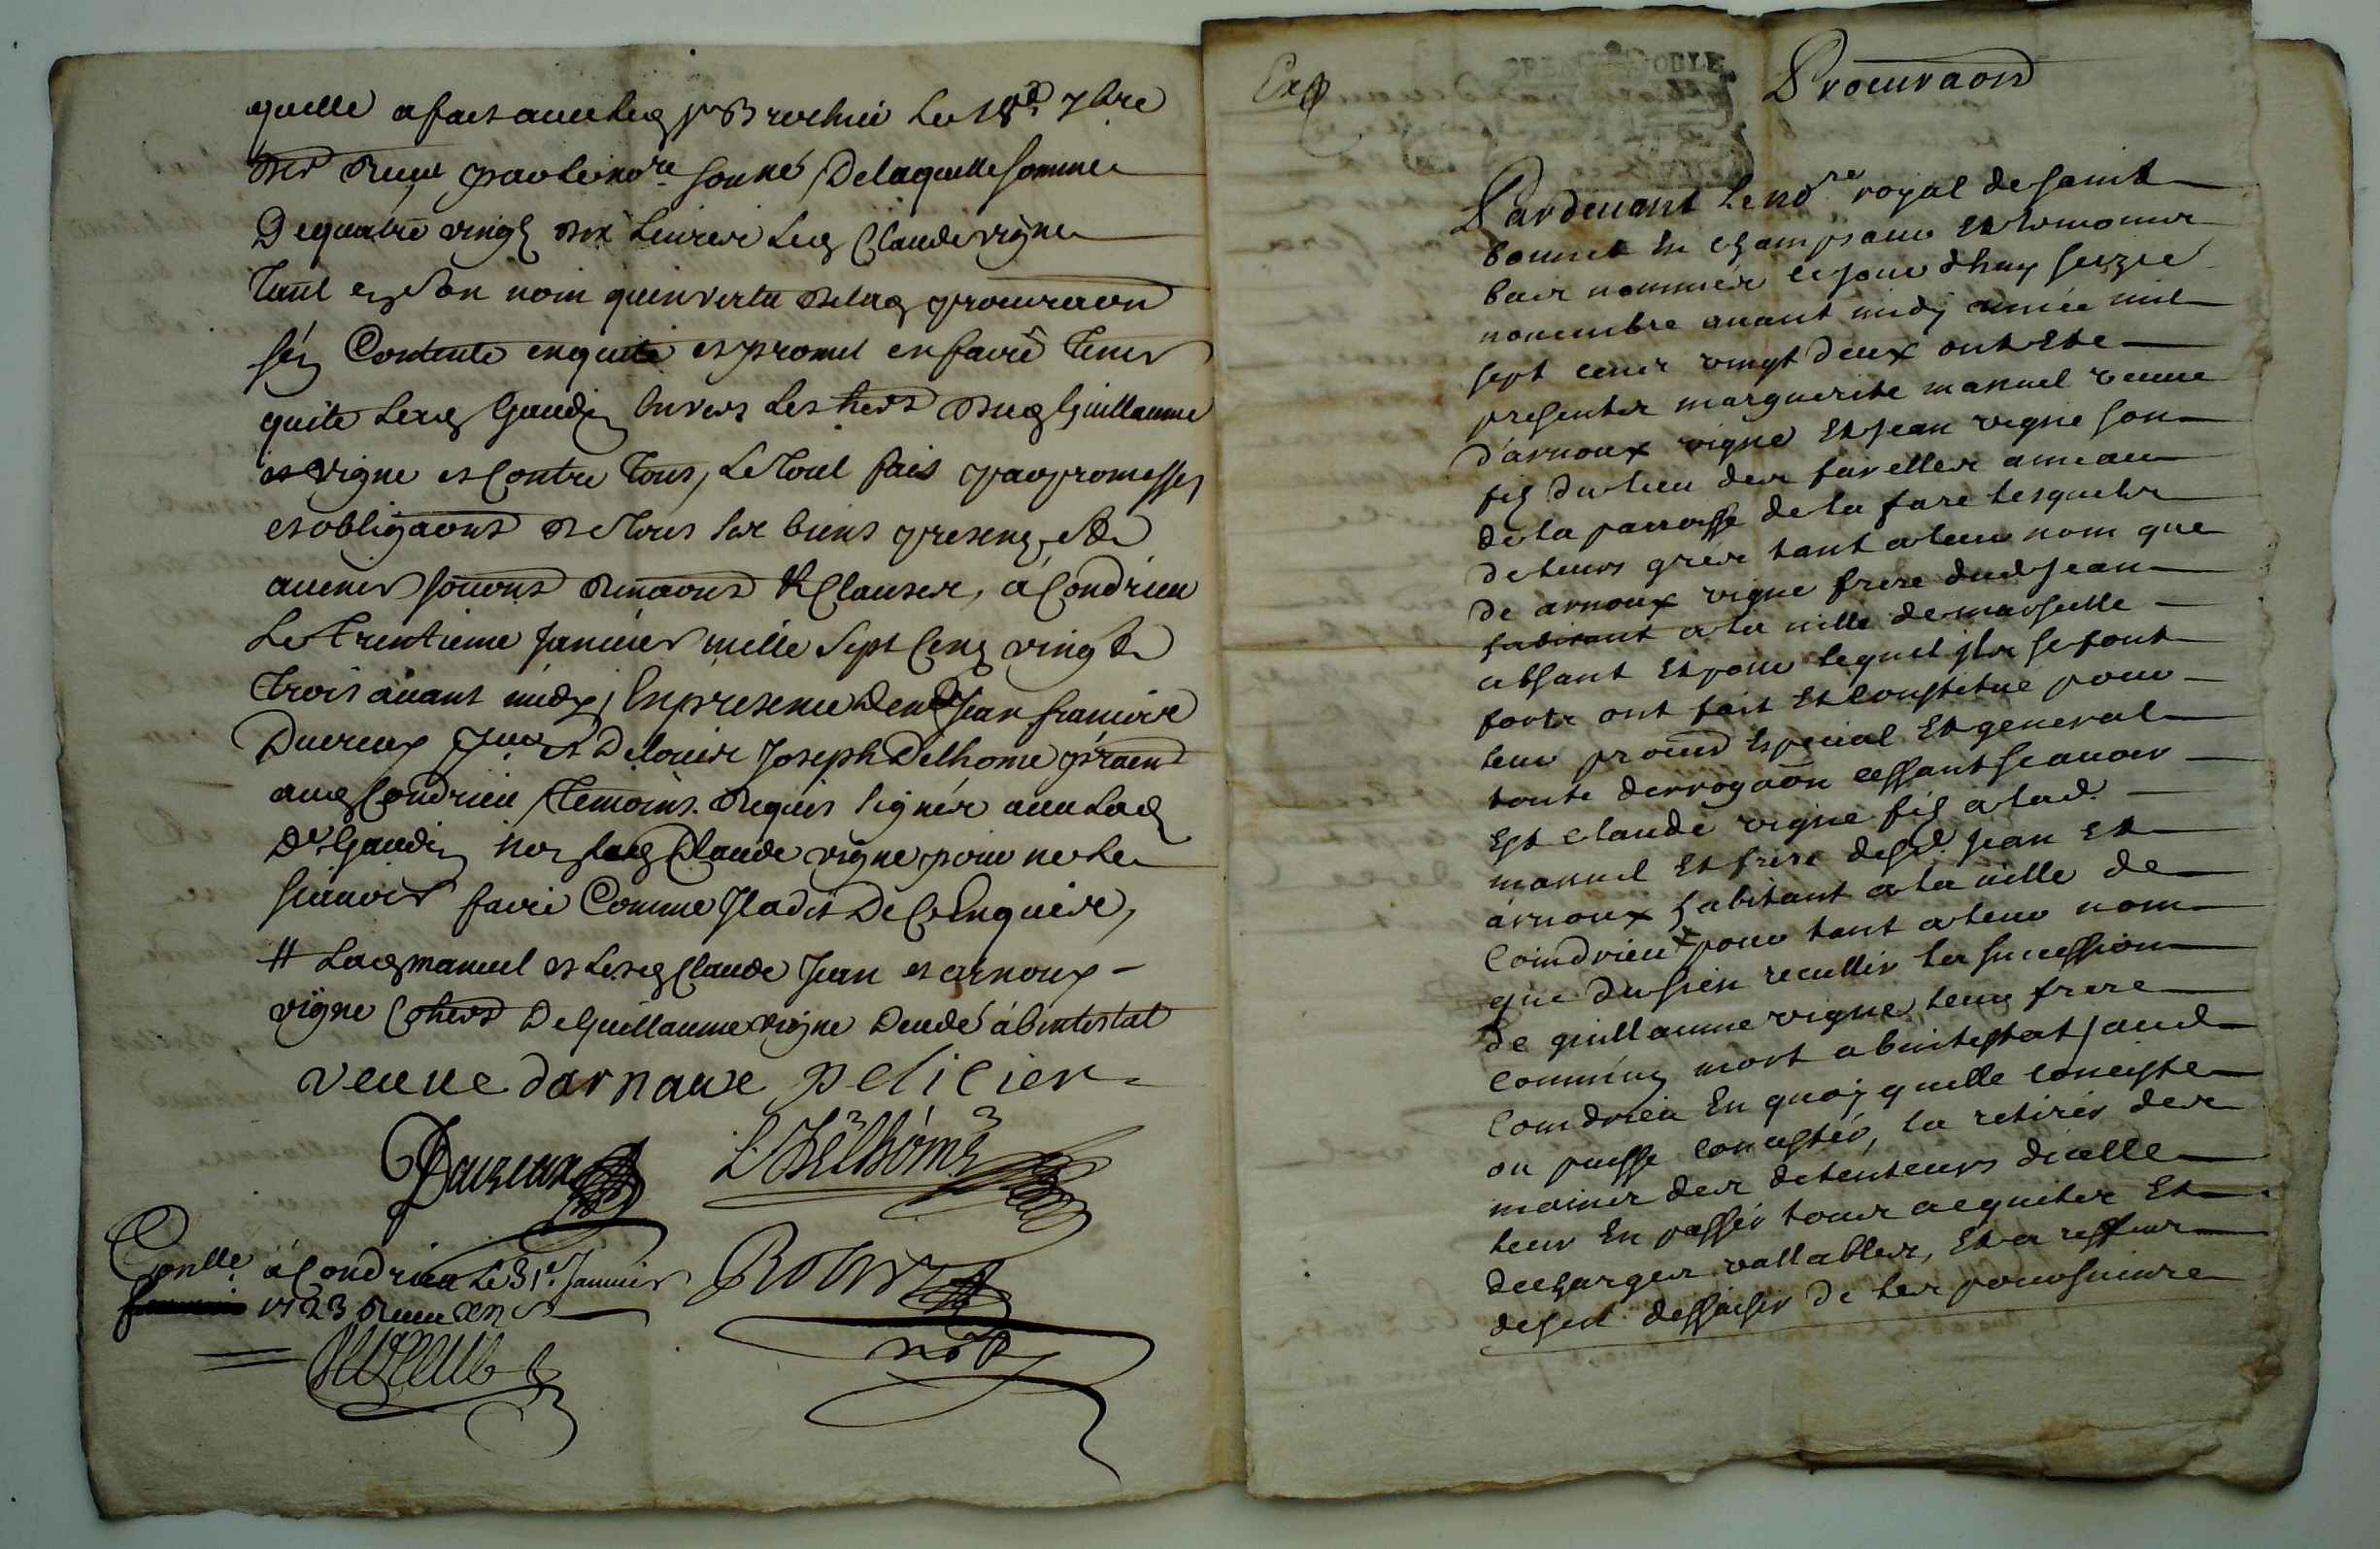 quelle a fait avec led sr Brochui le 18e 7bre
der receu par le no.re sonné, de laquelle somme
De quatre vingt dix livres led Claude vigne
tant en son nom quen vertu de lad procuraon
sen Contente en quite et promet en faire tenir
quite lad Gaudin Envers les hers dud Guillaume
vigne et Contre tous, le tout fait par promesses
et obligaons de tous ses biens presens et a
avenir soumons renaons & Clauses, a Condrieu
le trentieme janvier mille sept Cens vingt
trois avant midy, En presence de Jean francois
Ducreux et de louis Joseph Delhome praen
aud Condrieu temoins requis signés avec lad
De Gaudin non led Claude vigne pour ne le
scavoir faire Comme Il a dit De ce Enquis,
# Lad manuel et lesd Claude Jean et arnoux
vigne Cohers de Guillaume vigne decedé abintestat
veuve darnave pelicier
Ducreux L Delhome
Conllé a Condrieu le 31e Janvier
1723 Receu
Robin
nore
Exp
Procuraon
Pardevant le nore royal de saint
bonnet en champsaur et temoins
bas nommés ce jour dhuy seizie
novembre avant midy année mil
sept cens vingt deux ont este
presents marguerite manuel veuve
d'arnoux vigne et jean vigne son
fils du lieu des farelles ameau
de la parroisse de la fare lesquels
de leurs grés tant a leur nom que
de arnoux vigne frere dud jean
habitant a la ville de marseille
absant et pour lequel ils se font
forts ont fait et constitué pour
leur procur special et general
toute derrogaon cessant scavoir
est claude vigne fils a lad.
manuel et frere desd. jean et
arnoux habitant a la ville de
Coindrieu pour tant a leur nom
que du sien recullir la succession
de guillaume vigne leur frere
commun mort abintestat aud
Coindrieu en quoy quelle concyste
ou puisse concyster, la retirer des
mains des detenteurs dicelle
leur en passer tous acquiter et
decharges vallables, et a reffus